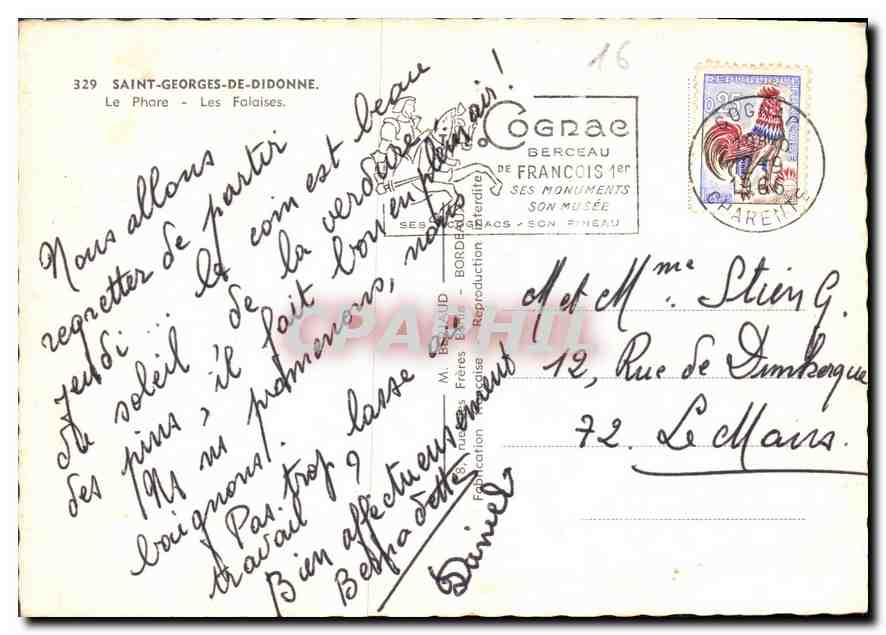 329 SAINT-GEORGES-DE-DIDONNE.
Le Phare - Les Falaises.
16
Nous allons
regretter de partir
jeudi... le coin est beau
du soleil, de la verdure
des pins, il fait bon en plein air !
Ns ns promenons, nous
baignons.
Pas trop lasse au
travail ?
Bien affectueusement
Bernadette
Daniel
COGNAC
BERCEAU
DE FRANCOIS 1er
SES MONUMENTS
SON MUSÉE
SES COGNACS - SON PINEAU
0,25
COGNAC
1966
CHARENTE
M. BERJAUD - BORDEAUX
Fabrication Française Reproduction interdite
CPAPHIL
M et Mme Stien G.
12, Rue de Dunkerque
72. Le Mans.